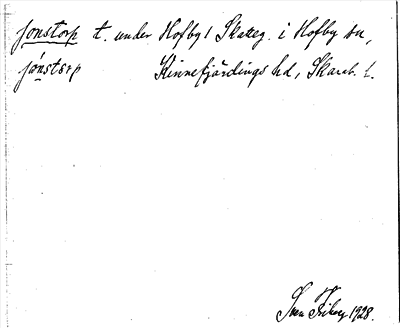 Jonstorp t. under Hofby 1 Skatteg. i Hofby sn,
jónstorp Kinnefjärdings hd, Skarab. l.
Sven Friberg 1928.